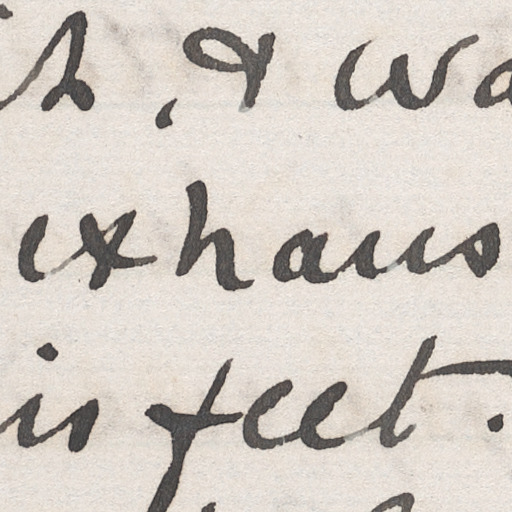 h, & wa
exhaus
is feet.